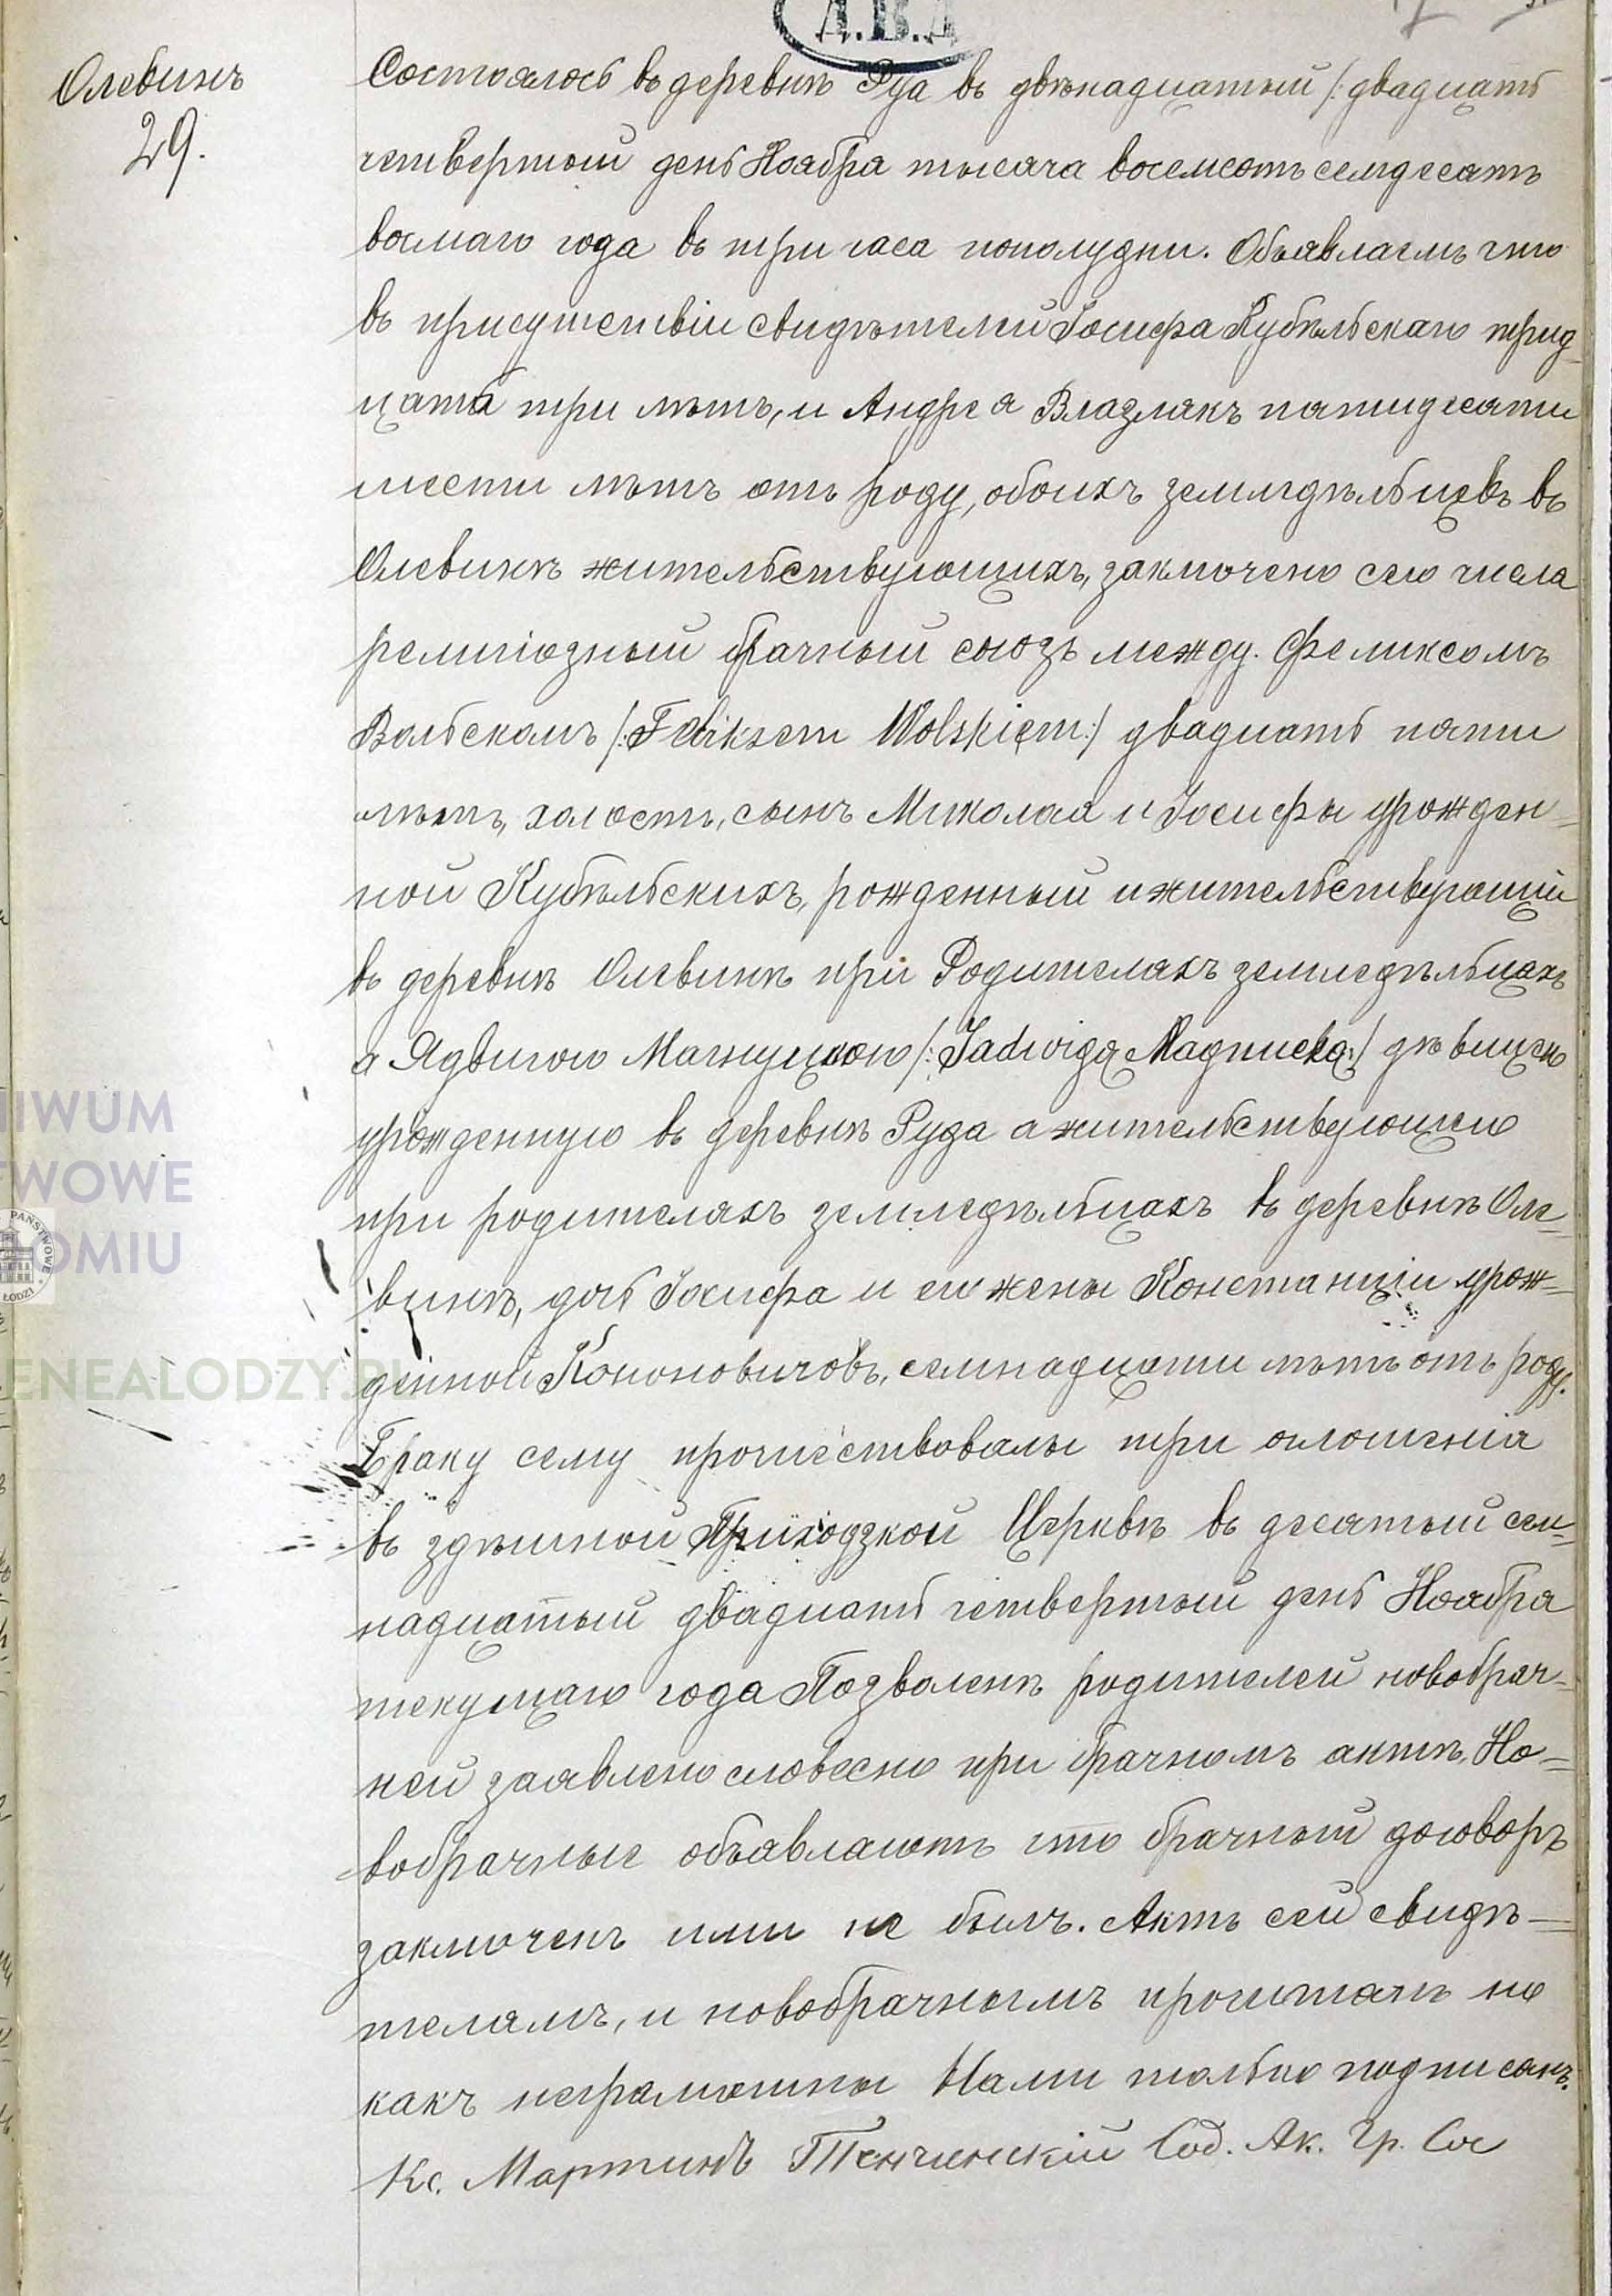 Олевинъ
29.
А.В.Д
Состоялось въ деревнѣ Руа въ двѣнадцатый /: двадцать
четвертый день Ноабра тысяча восемсотъ семдесятъ
восмаго года въ три часа пополудни. Объявлаемъ что
въ присутствіи свидѣтелей Іосифа Кубѣльскаго трид-
цата три лѣтъ, и Андреа Влазлякъ пятидесяти
шести лѣтъ отъ роду, обоихъ земледѣльцевъ въ
Олевинѣ жительствующихъ, заключено сего числа
религіозный брачный союзъ между. Феликсомъ
Вольскомъ /: Feliksem Wolskiem :/ двадцать пяти
лѣтъ, холостъ, сынъ Миколая и Іосифы урожден-
ной Кубѣльскихъ, рожденный и жительствующій
въ деревнѣ Олевинѣ при Родителяхъ земледѣльцахъ
а Ядвигою Магнуцкою /: Jadwigą Magnucką :/ дѣвицею
урожденную въ деревнѣ Руда а жительствующею
при родителяхъ земледѣльцахъ въ деревнѣ Оле-
винѣ, доч Іосифа и его жены Констанціи урож-
денной Кононовичовъ, семнадцати лѣтъ отъ роду.
Браку сему прочиествовалы три оглошенія
въ здѣшной Приходзкой Церквѣ въ десятый сем-
надцатый двадцать четвертый день Ноабра
текущаго года Позволенѣ родителей новобрач-
ней заявлено словесно при брачномъ актѣ. Но-
вобрачные объявлаютъ что брачный договоръ
заключенъ ими не былъ. Актъ сей свидѣ-
телямъ, и новобрачнымъ прочитанъ но
какъ неграмотны Нами только подписанъ.
Кс. Мартинъ Тенчинскій Сод. Ак. Гр. Сос
IWUM
WOWE
OMIU
PAŃSTWOWE
ŁODZI
ENEALODZY.PL